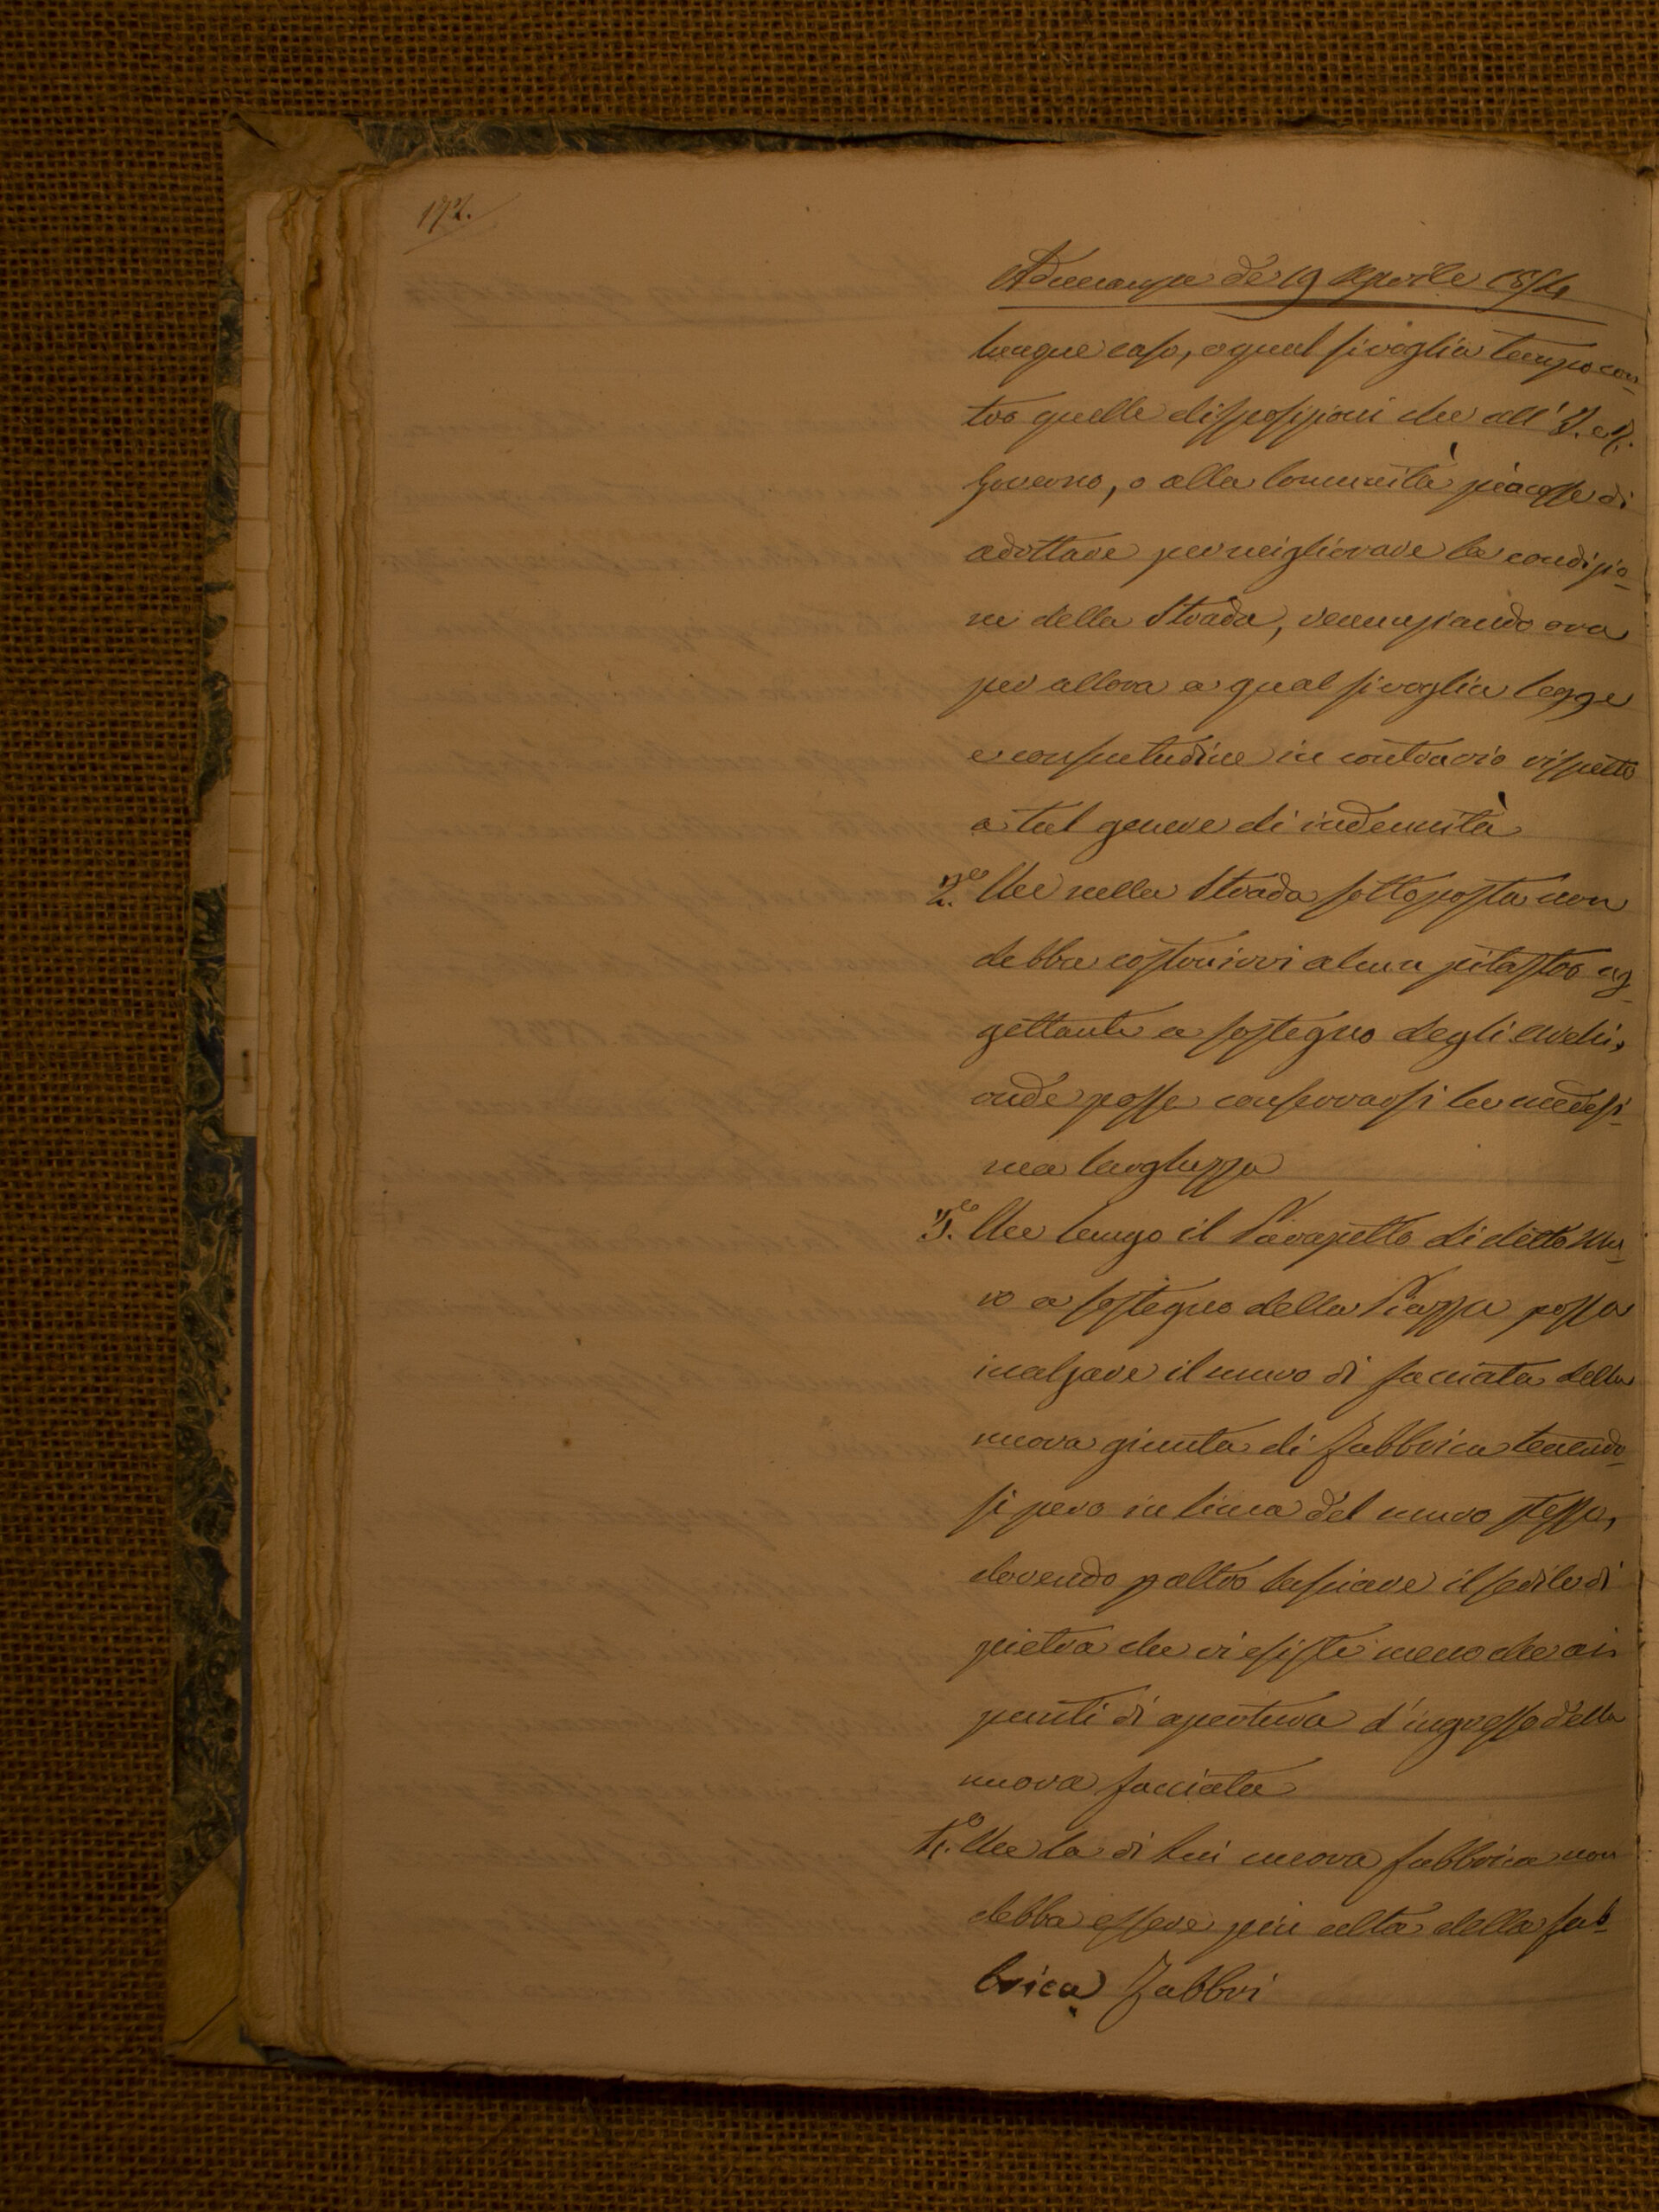 192.
Adunanza de 19 Aprile 1854
lunque caso, e qual sivoglia tempo con-
tro quelle disposizioni che all' I. e R.
Governo, o alla Comunità piacesse di
adottare per migliorare le condizio-
ni della Strada, renunziando ora
per allora a qual sivoglia legge
e consuetudine in contrario rispetto
a tal genere di indennità
2.° Che nella Strada sottoposta non
debba costruirvi alcun pilastro ag-
gettante a sostegno degli archi,
onde possa conservarsi la medesi-
ma larghezza
3.° Che lungo il Parapetto di detto Mu-
ro a sostegno della Piazza possa
inalzare il muro di facciata della
nuova giunta di fabbrica tenendo-
si pero in linea del muro stesso,
dovendo p altro lasciare il sedile di
pietra che vi esiste meno che ai
punti di apertura d'ingresso della
nuova facciata
4.° Che la di lui nuova fabbrica non
debba essere piu alta della fab-
brica Fabbri